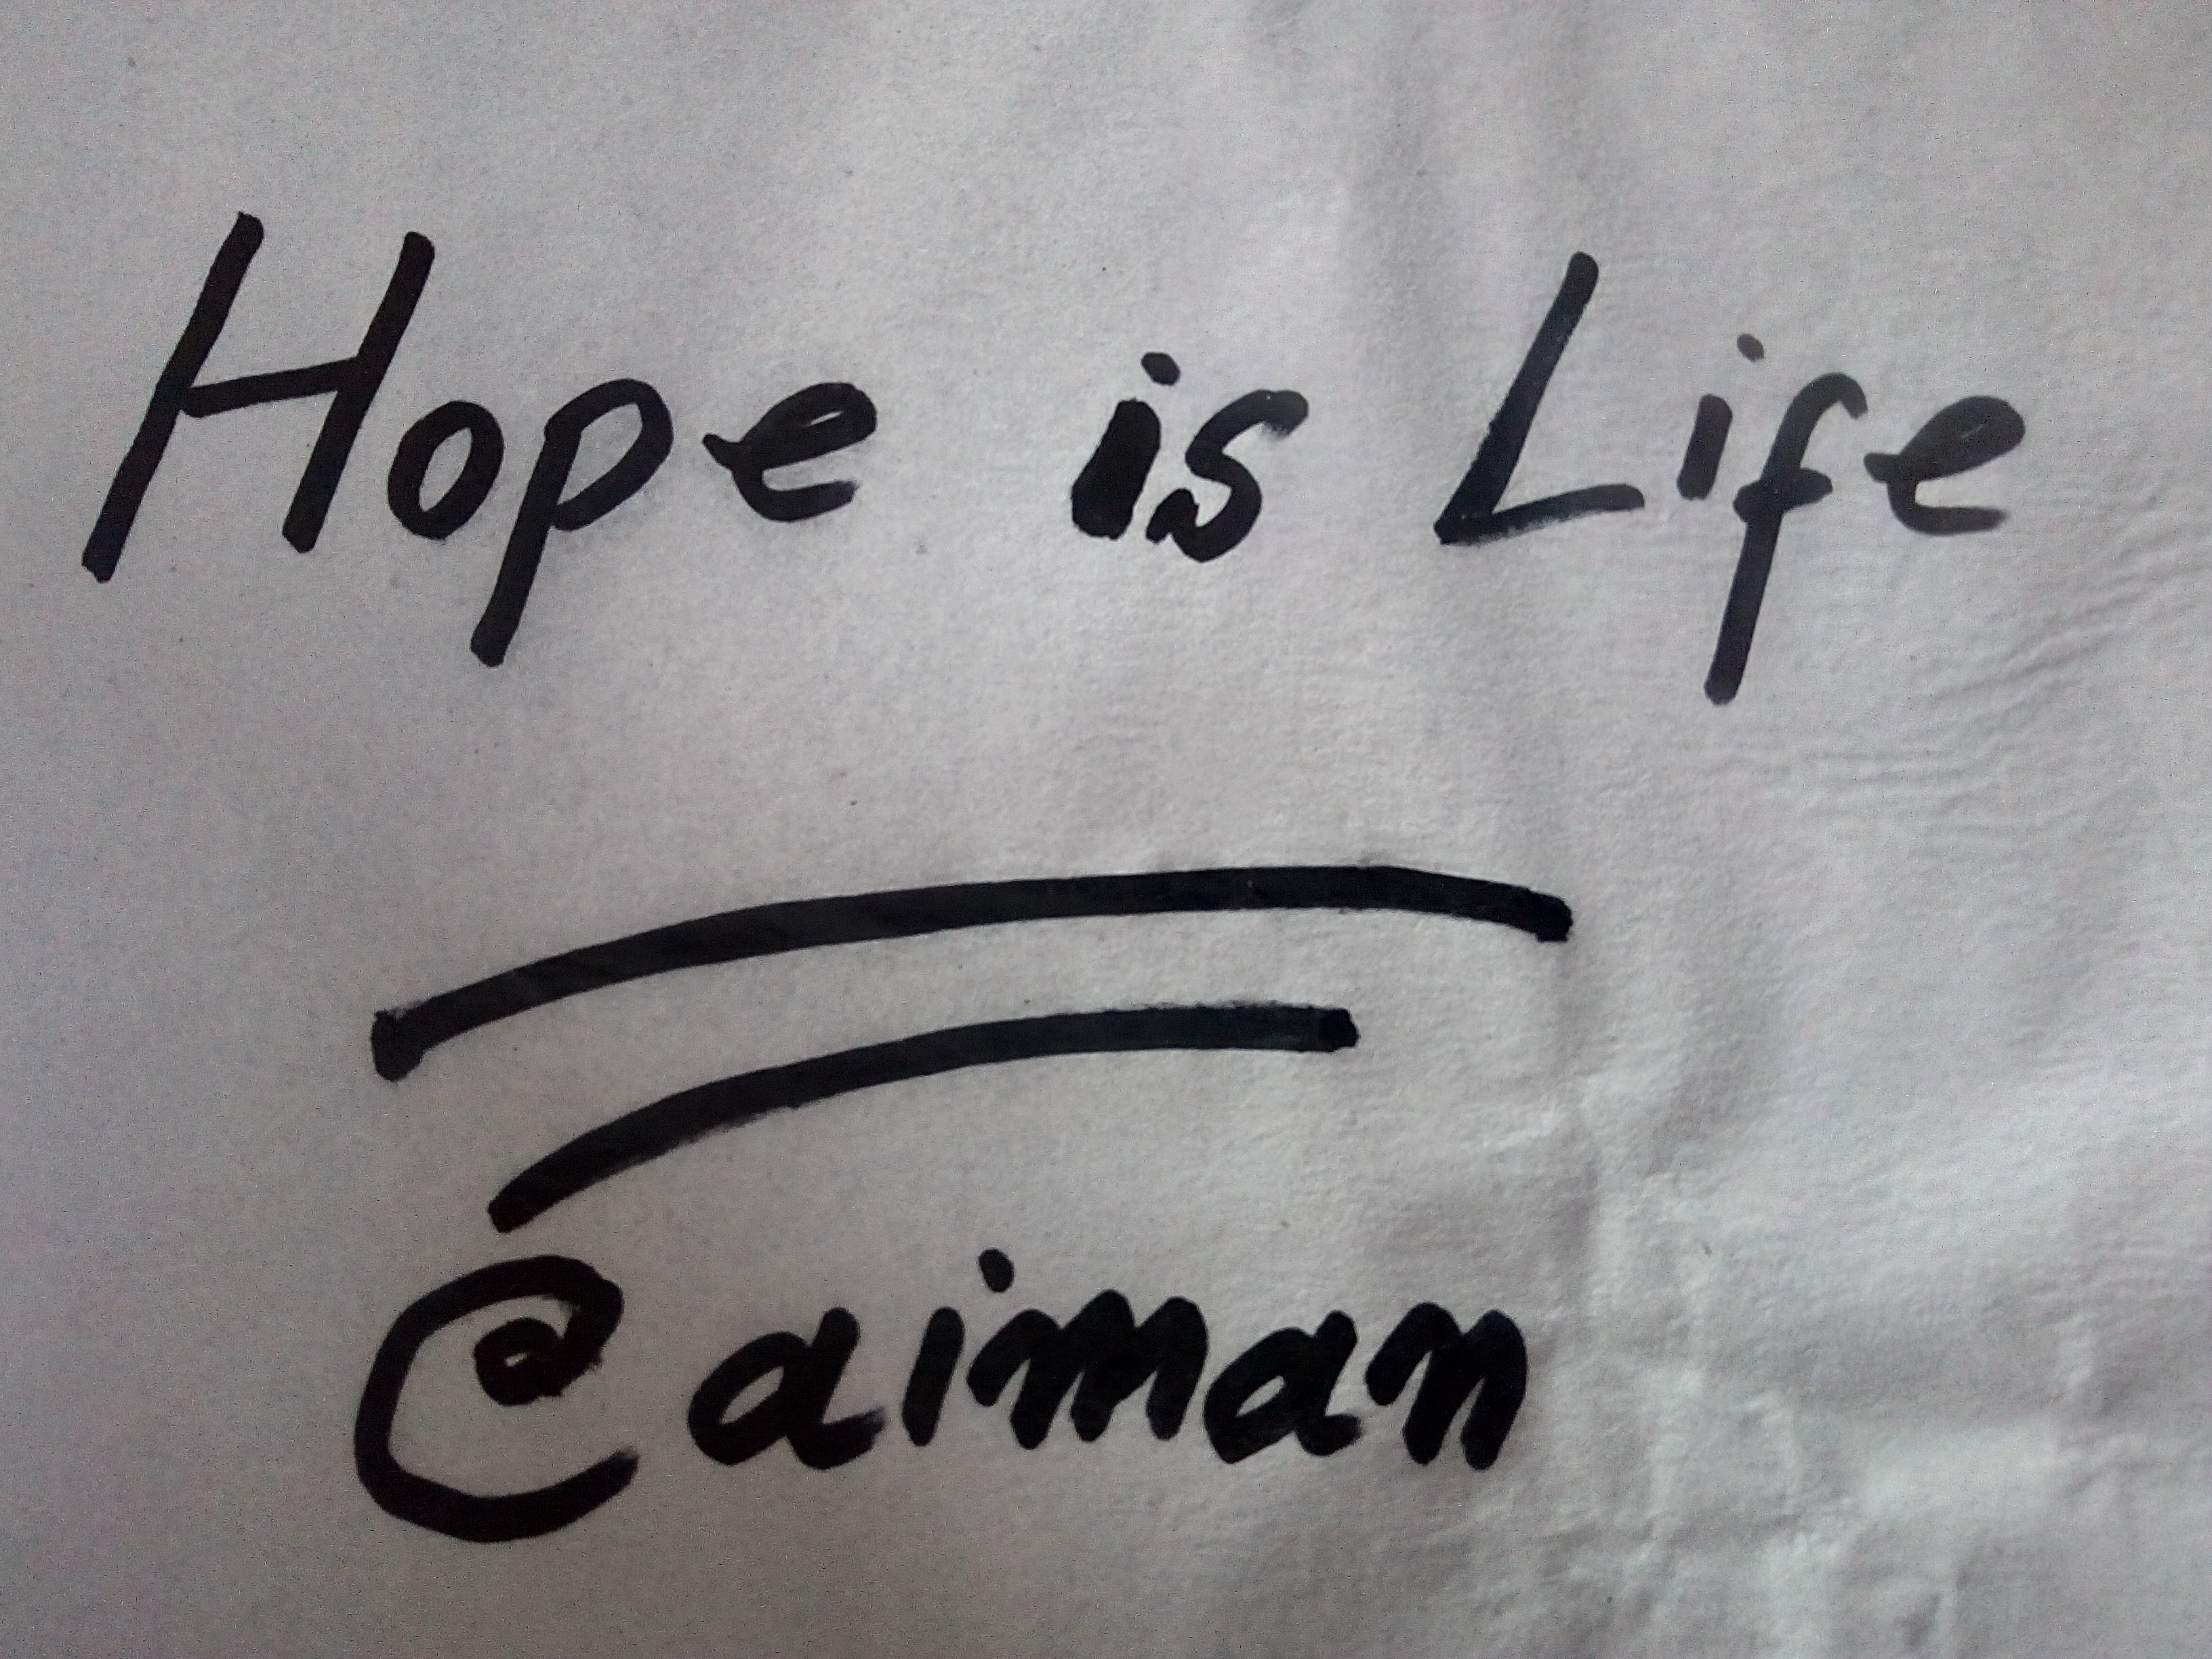 Hope is Life
@aiman